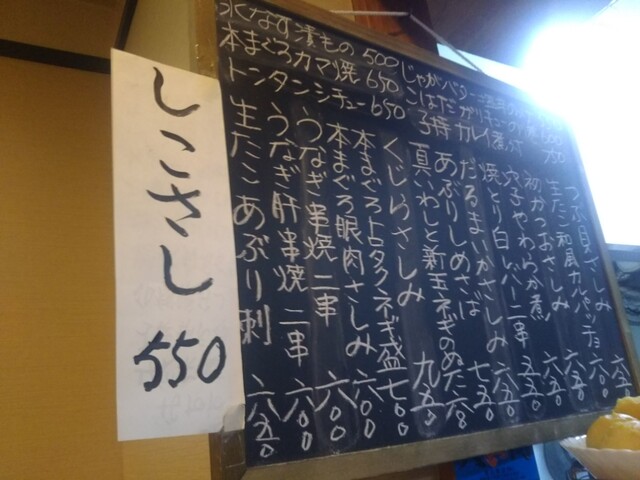 しこさし
550
水なす漬もの 500
本まぐろカマ焼 650
トンタンシチュー 650
じゃがバター
こはだガリ
子持カレイ煮
つぶ貝さしみ
生たこ和風カルパッチョ 六五〇
初かつおさしみ 六五〇
穴子やわらか煮 五五〇
焼とり白レバー二串 六五〇
だるまいかさしみ 七五〇
あぶりしめさば 六〇〇
真いわしと新玉ネギのぬた
くじらさしみ 九五〇
本まぐろトロタクネギ盛 七〇〇
本まぐろ眼肉さしみ 六〇〇
うなぎ串焼 二串 六〇〇
うなぎ肝串焼 二串 六〇〇
生たこあぶり刺 六五〇